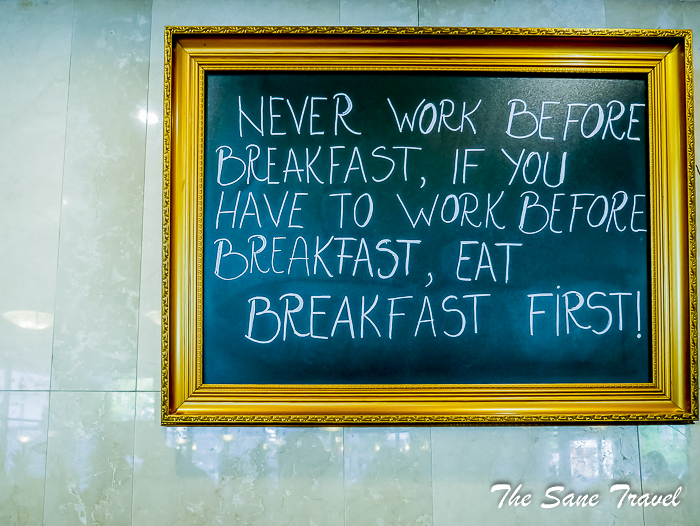 NEVER WORK BEFORE
BREAKFAST, IF YOU
HAVE TO WORK BEFORE
BREAKFAST, EAT
BREAKFAST FIRST!
The Sane Travel